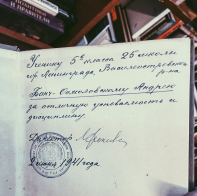 Ученику 5го класса 25 школы
гор. Ленинграда, Василеостровского
р-на
Бонч-Осмоловскому Андрею
за отличную успеваемость и
дисциплину.
Директор
2 июня 1941 года